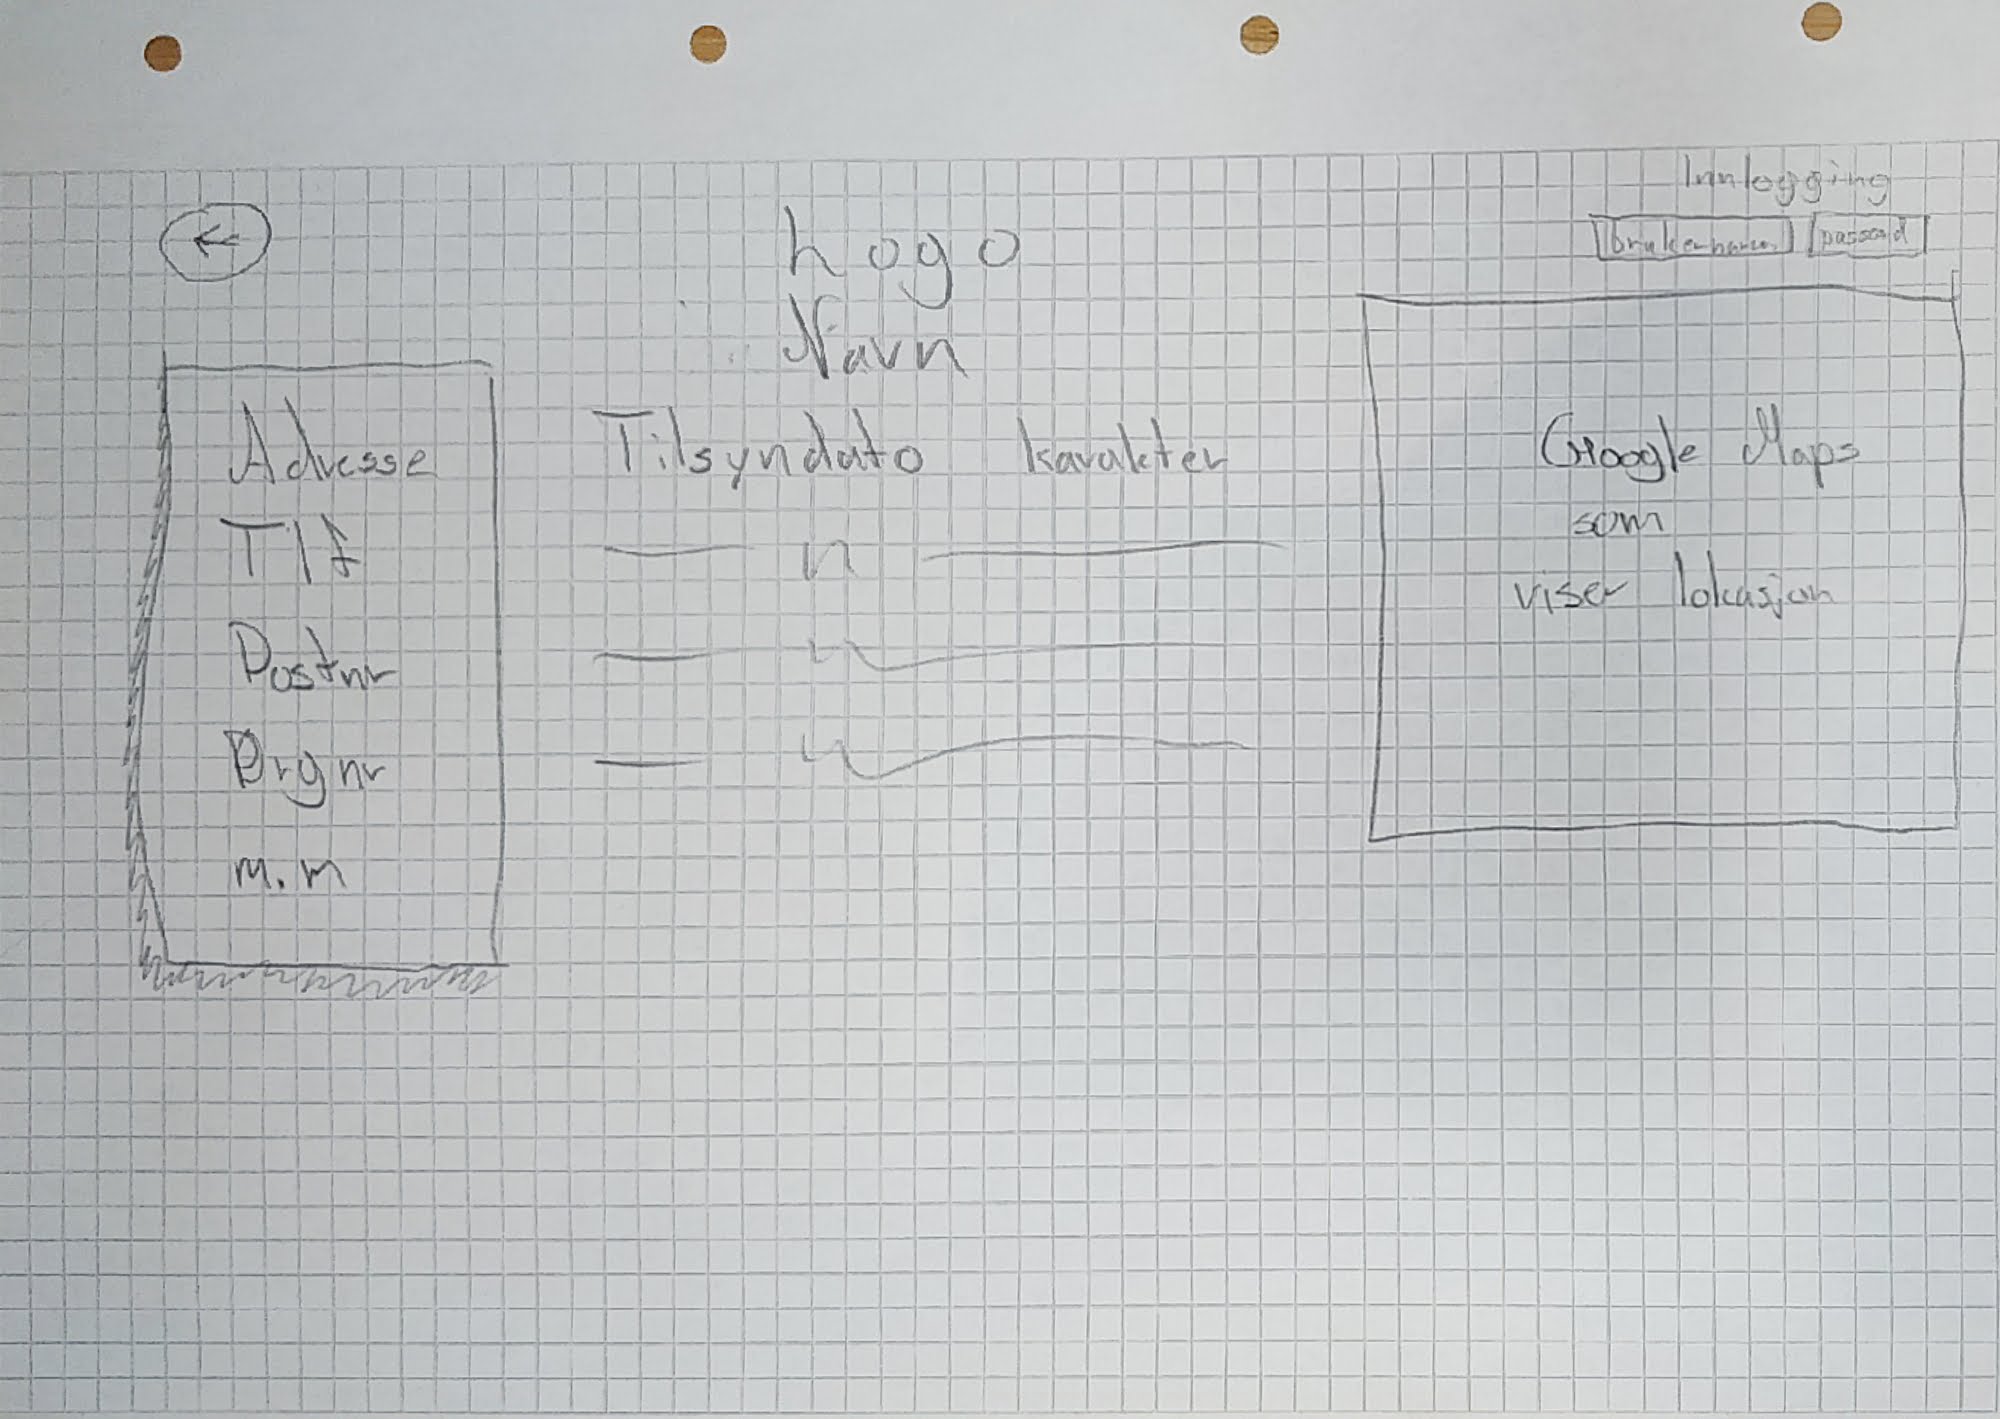 Innlogging
brukernavn passord
Logo
Navn
Adresse
Tlf
Postnr
Orgnr
m.m
Tilsyndato karakter
—— " ————
—— " ————
—— " ————
Google Maps
som
viser lokasjon